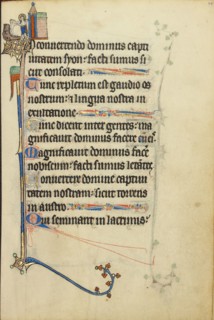 In convertendo dominus capti
vitatem syon: facti sumus si
cut consolati.
Tunc repletum est gaudio os
nostrum: et lingua nostra in
exultatione.
Tunc dicent inter gentes: ma
gnificavit dominus facere cum eis.
Magnificavit dominus facere
nobiscum: facti sumus letantes.
Convertere domine captivi
tatem nostram: sicut torrens
in austro.
Qui seminant in lacrimis: